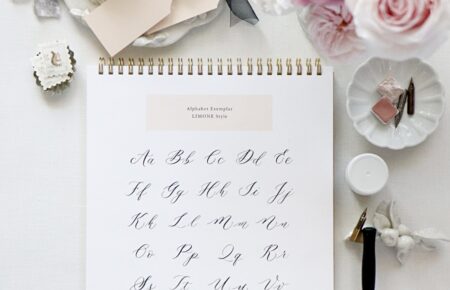 Alphabet Exemplar
LIMONE Style
Aa Bb Cc Dd Ee
Ff Gg Hh Ii Jj
Kk Ll Mm Nn
Oo Pp Qq Rr
Ss Tt Uu Vv